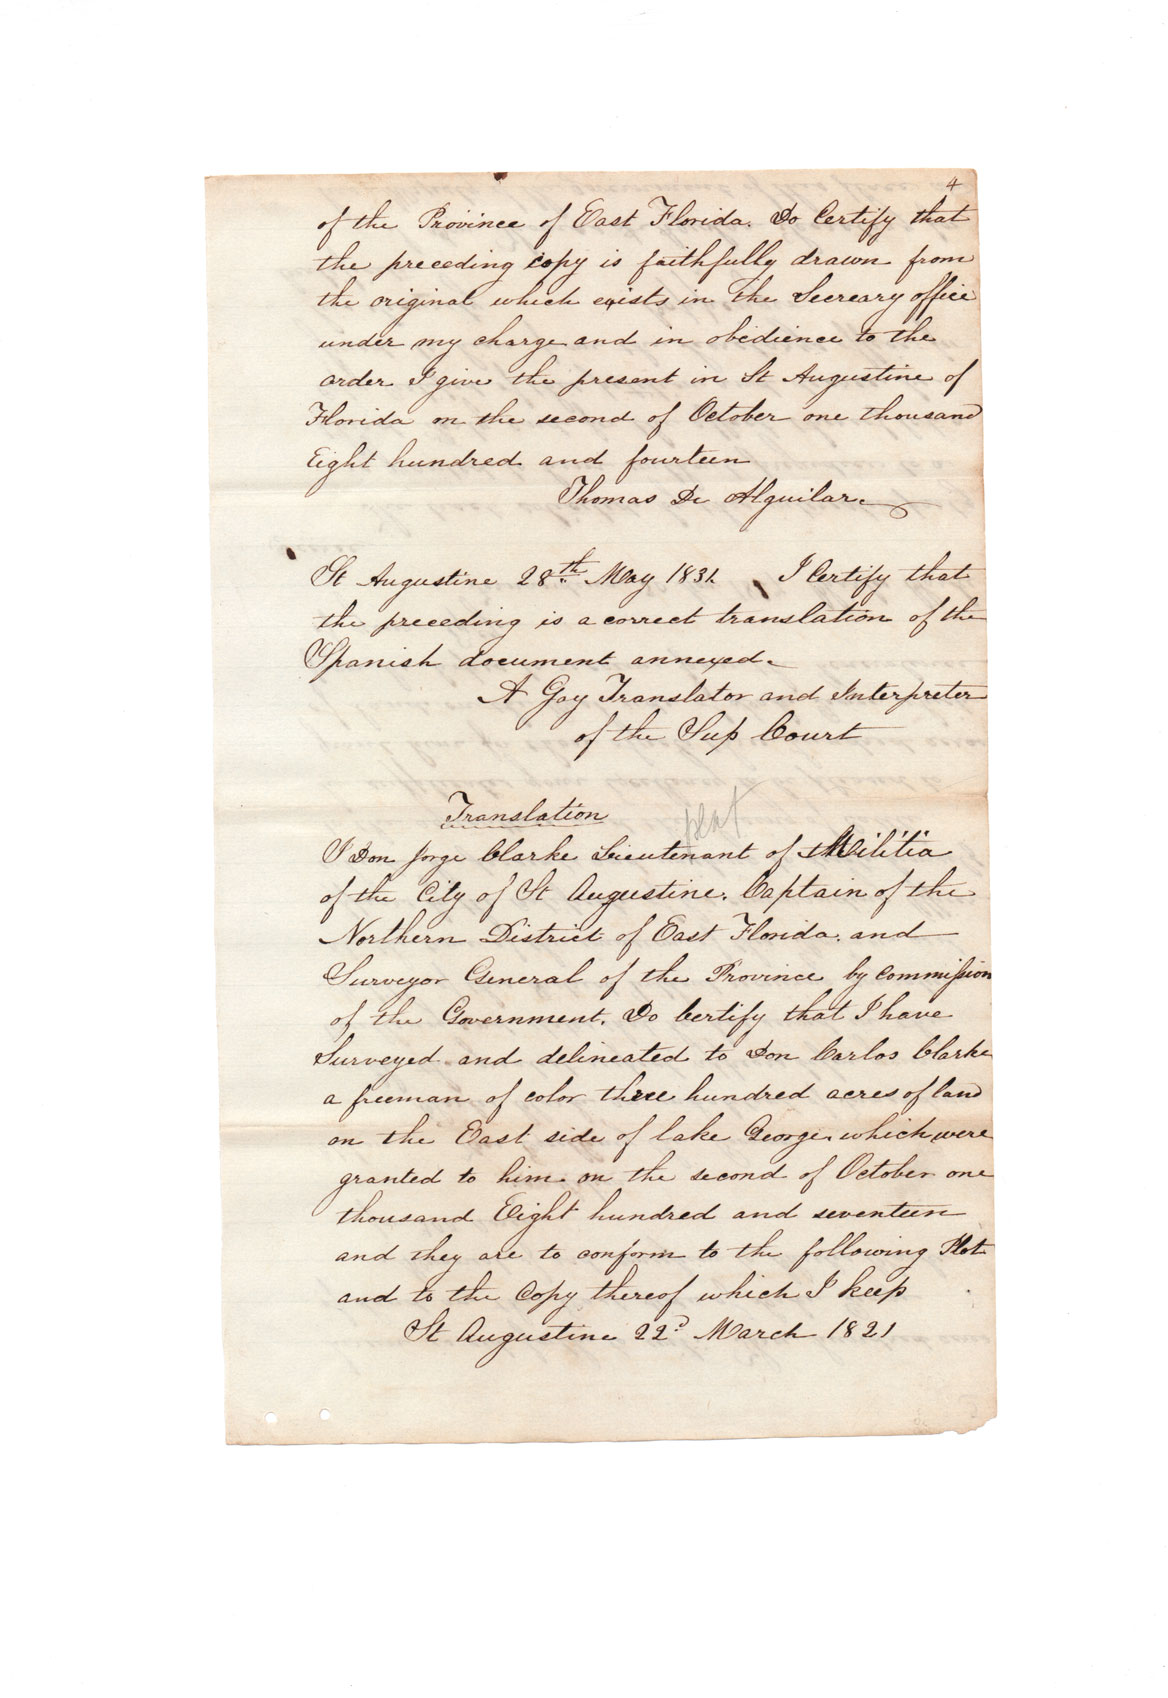 4
of the Province of East Florida. Do Certify that
the preceding copy is faithfully drawn from
the original which exists in the Secreary office
under my charge and in obedience to the
order I give the present in St Augustine of
Florida on the second of October one thousand
Eight hundred and fourteen
Thomas De Alguilar.
St Augustine 28th May 1831. I Certify that
the preceding is a correct translation of the
Spanish document annexed.
A Gay Translator and Interpreter
of the Sup Court
plat
Translation
I Don Jorge Clarke Lieutenant of Militia
of the City of St Augustine. Captain of the
Northern District of East Florida. and
Surveyor General of the Province by commission
of the Government. Do Certify that I have
Surveyed and delineated to Don Carlos Clarke
a freeman of color three hundred acres of land
on the East side of lake George. which were
granted to him on the second of October one
thousand Eight hundred and seventeen
and they are to conform to the following Plot
and to the Copy thereof which I keep
St Augustine 22d March 1821